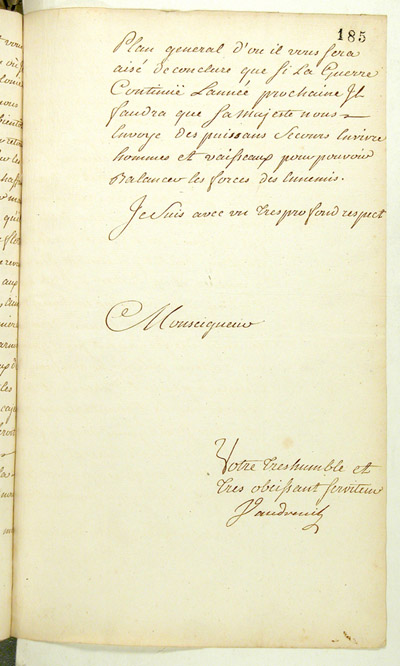 185
Plan general d'ou il vous sera
aisé de conclure que si La Guerre
Continuë L'année prochaine Jl
faudra que sa Majesté nous
Envoye des puissans secours En vivre
hommes et vaisseaux pour pouvoir
Balancer les forces des Ennemis.
Je suis avec un Tres profond respect
Monseigneur
Votre Tres humble et
Tres obeissant serviteur
Vaudreuil